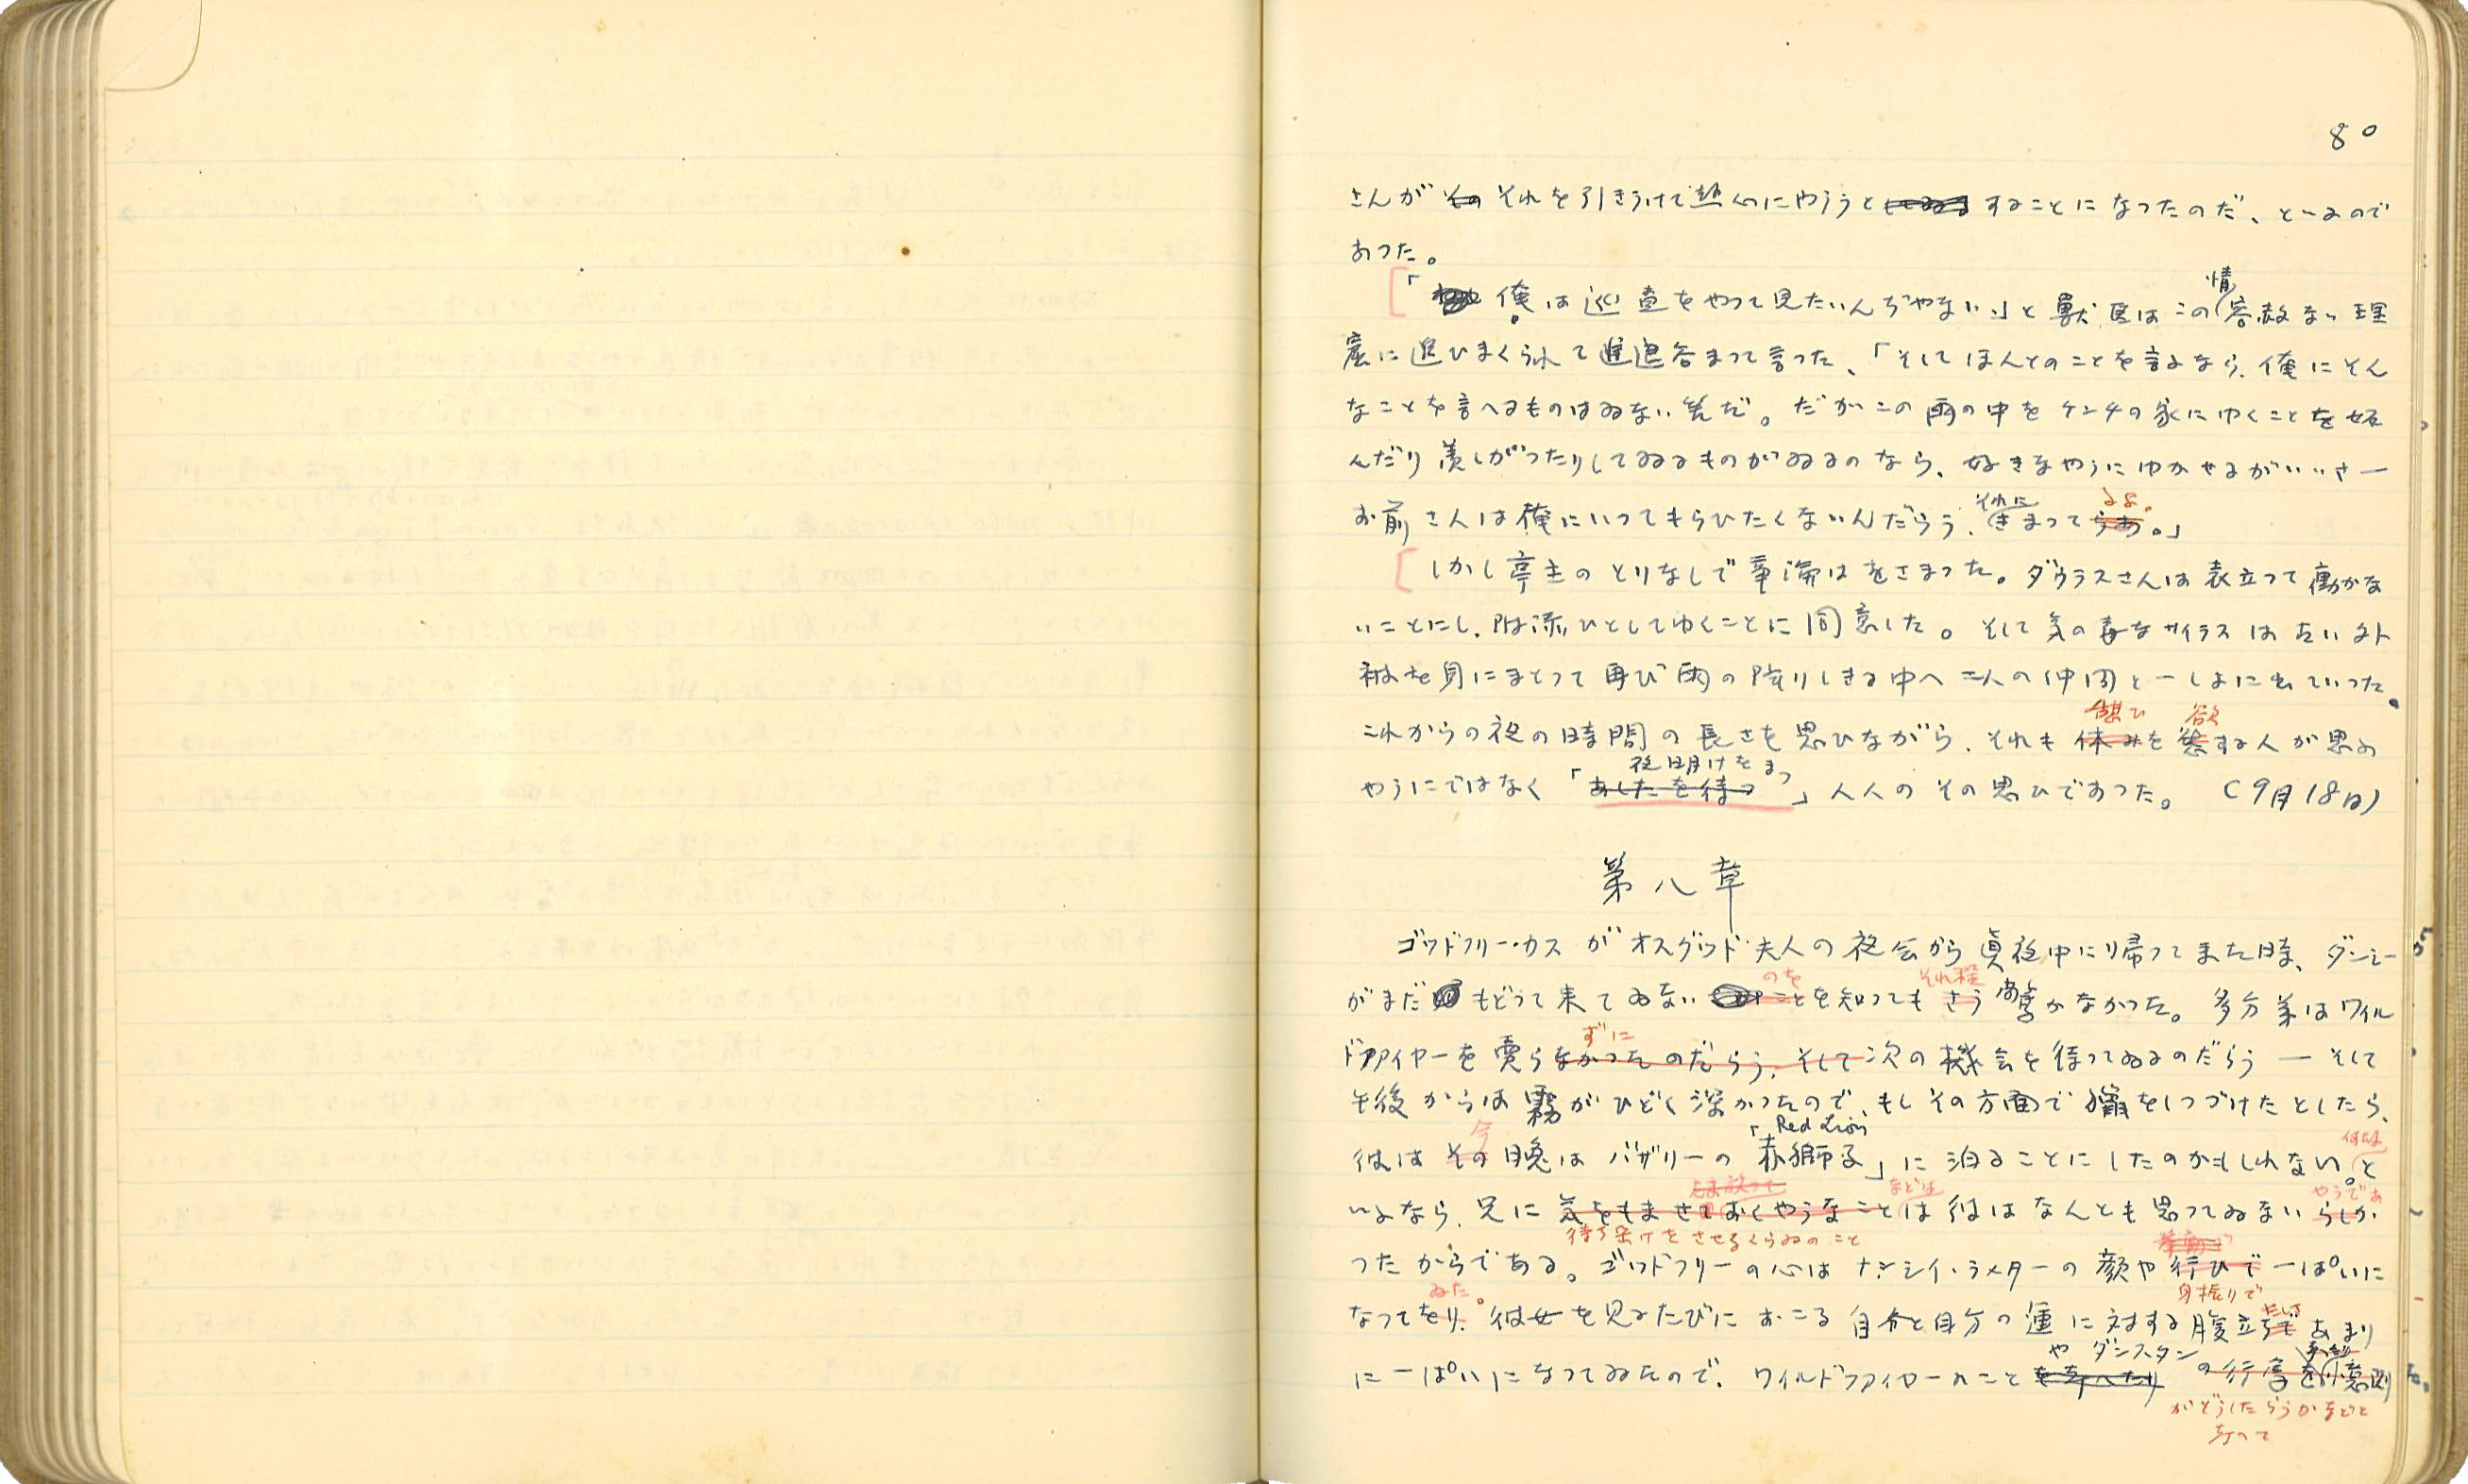 80
さんが その それを引きうけて熱心にやらうと することになつたのだ、といふので
あつた。
「 俺は巡査をやつて見たいんぢやない」と獣医はこの情容赦ない理
窟に追ひまくられて進退谷まつて言つた、「そしてほんとのことを言ふなら、俺にそん
なことを言へるものはゐない筈だ。だがこの雨の中をケンチの家にゆくことを妬
んだり羨しがつたりしてゐるものがゐるのなら、好きなやうにゆかせるがいいさー
お前さんは俺にいつてもらひたくないんだらう、それにきまつてらあ。るよ。」
しかし亭主のとりなしで争論はをさまつた。ダウラスさんは表立つて働かな
いことにし、附添ひとしてゆくことに同意した。そして気の毒なサイラスは古い外
被を身にまとつて再び雨の降りしきる中へ二人の仲間と一しよに出ていつた。
これからの夜の時間の長さを思ひながら、それも休みを 憩ひ 欲する人が思ふ
やうにではなく「あしたを待つ 夜明けをまつ」人人のその思ひであつた。 (9月18日)
第八章
ゴッドフリー・カスがオスグッド夫人の夜会から真夜中に帰つてきた時、ダンシー
がまだ もどつて来てゐない ことを のを 知つてもさう それ程 驚かなかつた。多分弟はワイル
ドファイヤーを売らなかつたのだらう、そして ずに 次の機会を待つてゐるのだらう ー そして
午後からは霧がひどく深かつたので、もしその方面で猟をしつづけたとしたら、
彼はその 今 晩はバザリーの「赤獅子 Red Lion」に泊ることにしたのかもしれない。何故と
いふなら、兄に気をもませておくやうなことは 待ち呆けをさせるくらゐのこと などは 彼はなんとも思つてゐないらしか やうであ
つたからである。ゴッドフリーの心はナンシイ・ラメターの顔や行ひで 身振りで 一ぱいに
なつてをり、ゐた。彼女を見るたびにおこる自分と自分の運に対する腹立ちで あまり
に一ぱいになつてゐたので、ワイルドファイヤーのことを考へたり や ダンスタンの行為を臆測
がどうしたらうかなどと
考へて